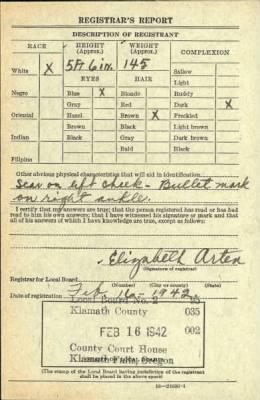 REGISTRAR'S REPORT
DESCRIPTION OF REGISTRANT
RACE HEIGHT (Approx.) WEIGHT (Approx.) COMPLEXION
White X 5 ft 6 in. 145 Sallow
EYES HAIR Light
Negro Blue X Blonde Ruddy
Gray Red Dark X
Oriental Hazel Brown X Freckled
Brown Black Light brown
Indian Black Gray Dark brown
Bald Black
Filipino
Other obvious physical characteristics that will aid in identification
Scar on left cheek - Bullet mark
on right ankle.
I certify that my answers are true; that the person registered has read or has had
read to him his own answers; that I have witnessed his signature or mark and that
all of his answers of which I have knowledge are true, except as follows:
Elizabeth Arten
(Signature of registrar)
Registrar for Local Board
(Number) (City or county) (State)
Date of registration Feb 16 - 1942
Local Board No. 2 35
Klamath County 035
FEB 16 1942 002
County Court House
Klamath Falls, Oregon
(The stamp of the Local Board having jurisdiction of the registrant
shall be placed in the above space)